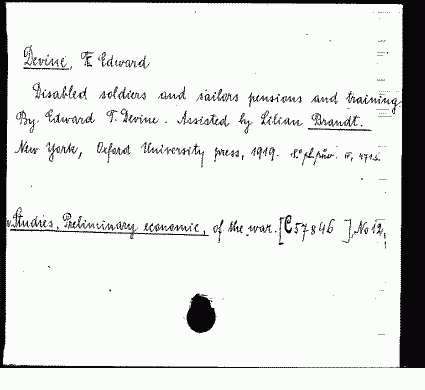 Devine, E Edward
Disabled soldiers and sailors pensions and training.
By Edward T. Devine. Assisted by Lilian Brandt.
New York, Oxford University press, 1919. IV, 471 S.
Studies, Preliminary economic, of the war. [C 57846 ], No 12,